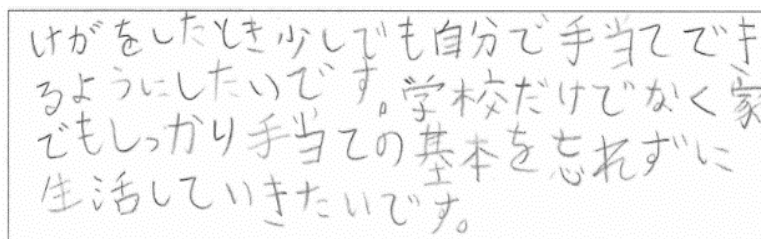 けがをしたとき少しでも自分で手当てでき
るようにしたいです。学校だけでなく家
でもしっかり手当ての基本を忘れずに
生活していきたいです。